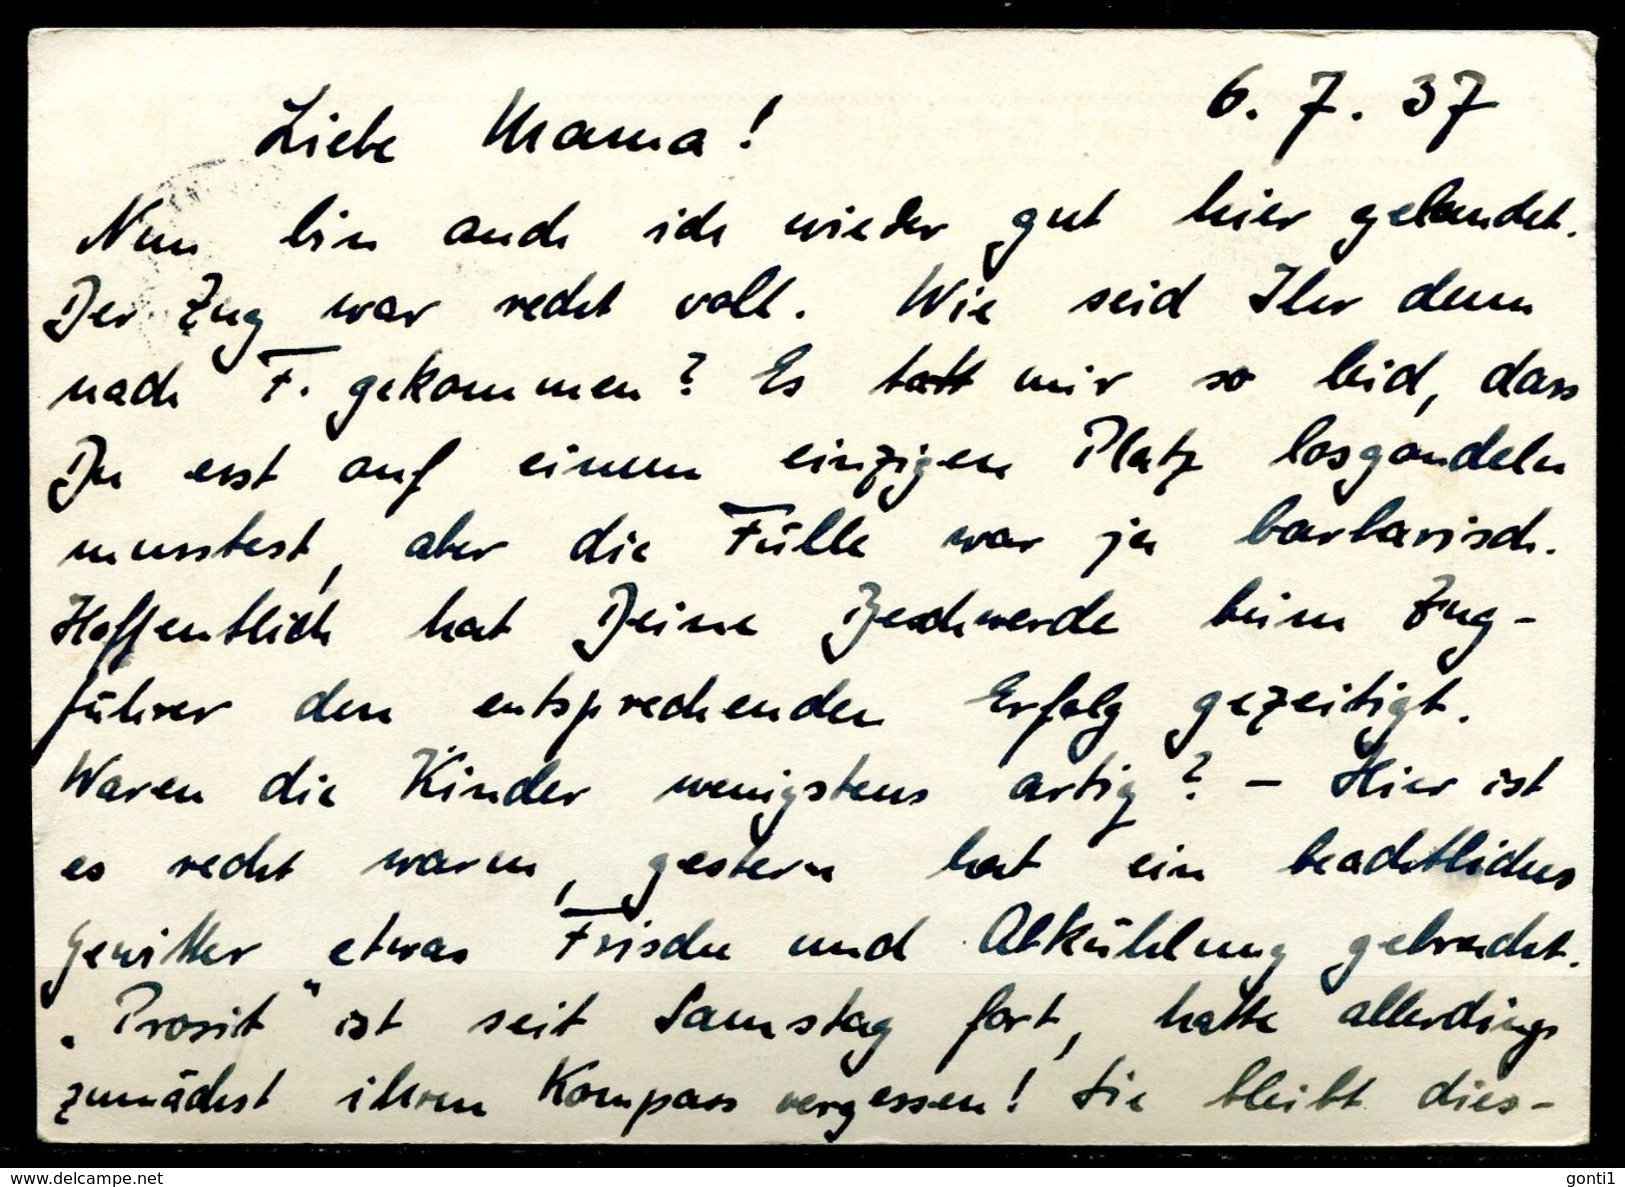 6. 7. 37
Liebe Mama!
Nun bin auch ich wieder gut hier gelandet.
Der Zug war recht voll. Wie seid Ihr denn
nach F. gekommen? Es tat mir so leid, dass
Du erst auf einem einzigen Platz losgondeln
musstest, aber die Fülle war ja barbarisch.
Hoffentlich hat Deine Beschwerde beim Zug-
führer den entsprechenden Erfolg gezeitigt.
Waren die Kinder wenigstens artig? – Hier ist
es recht warm, gestern hat ein beachtliches
Gewitter etwas Frische und Abkühlung gebracht.
„Prosit" ist seit Samstag fort, hatte allerdings
zunächst ihren Kompass vergessen! Sie bleibt dies-
gonti1